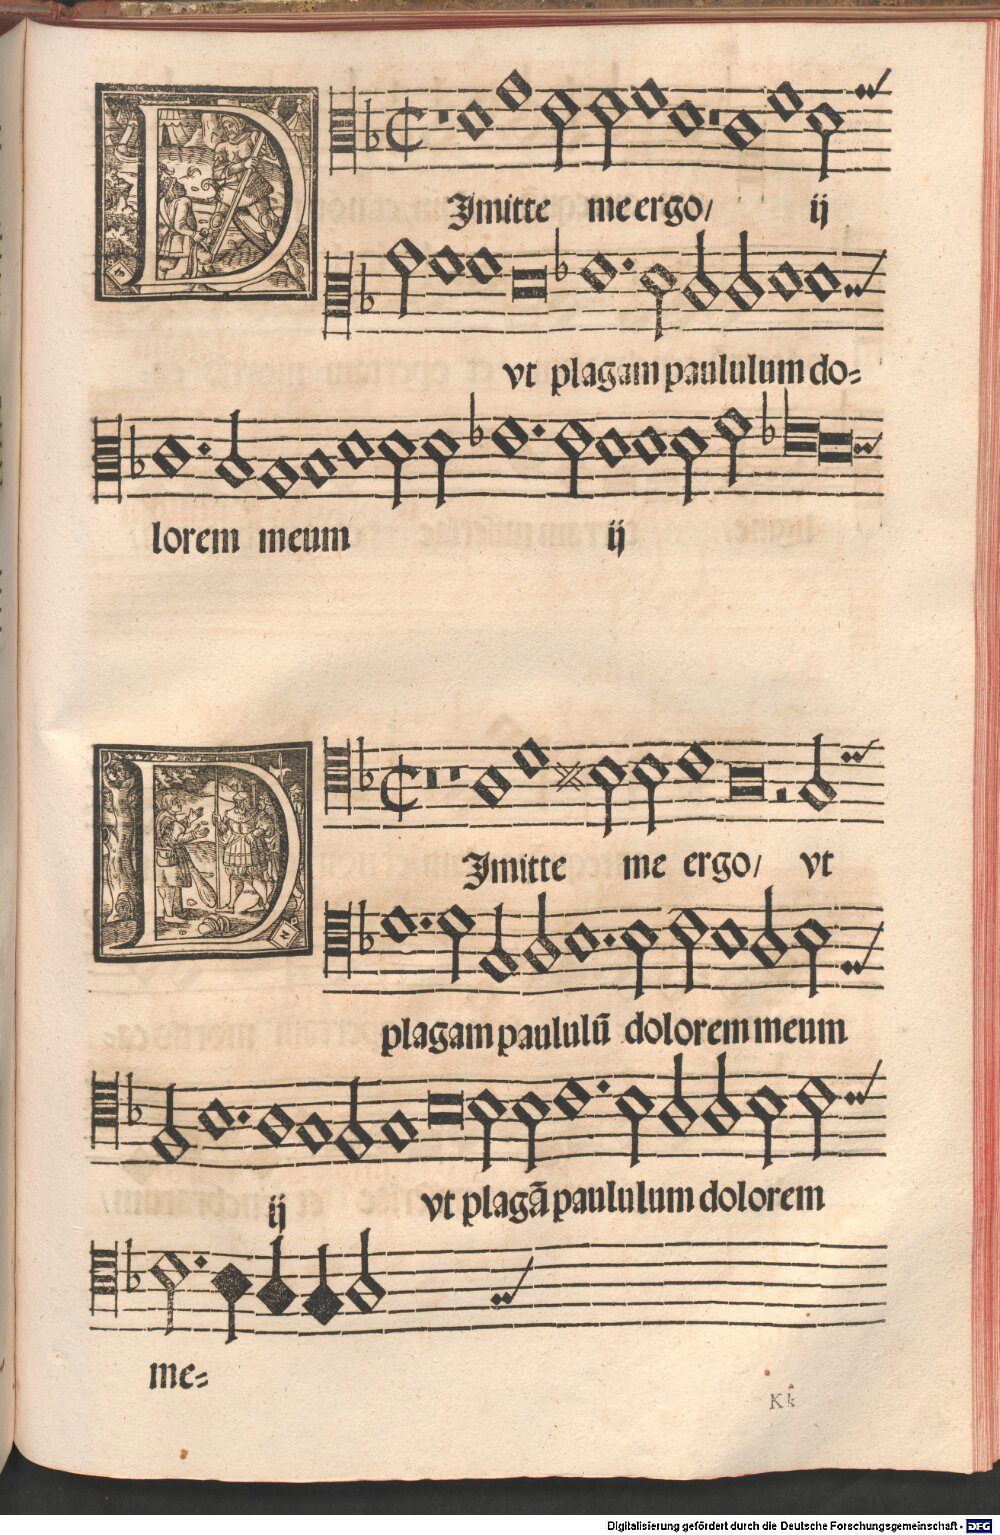 DImitte me ergo/ ij
vt plagam paululum do=
lorem meum ij
DImitte me ergo/ vt
plagam paululū dolorem meum
ij vt plagā paululum dolorem
me=
Kk
Digitalisierung gefördert durch die Deutsche Forschungsgemeinschaft - DFG